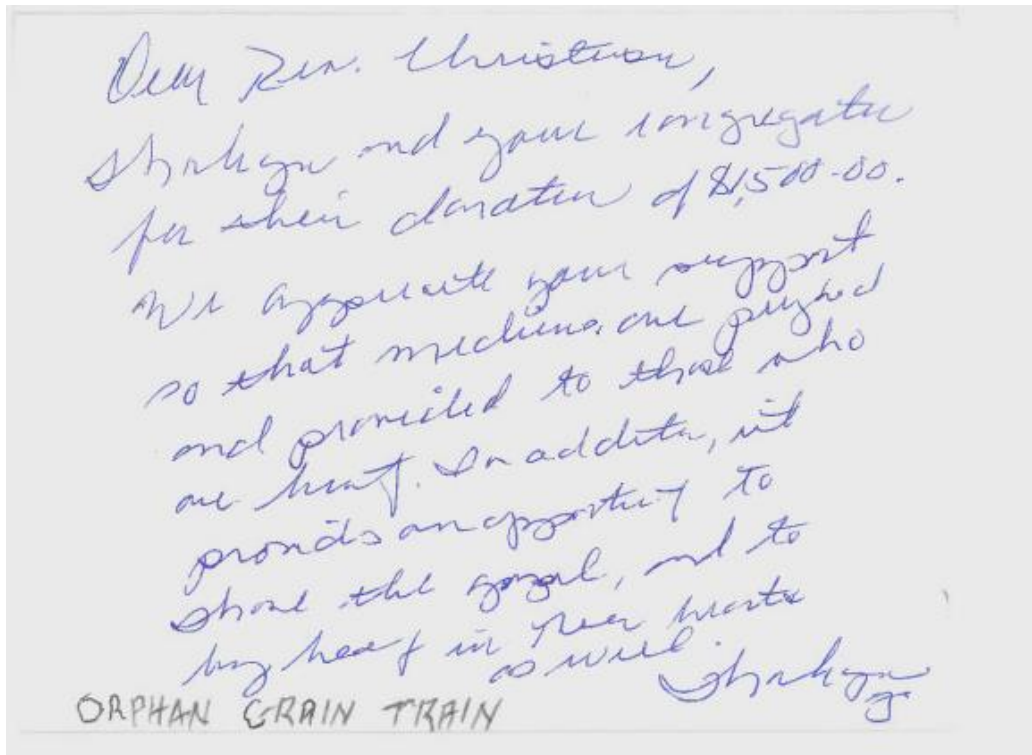 Dear Rev.
Thank you and your congregation
for their donation of $1,500.00.
We appreciate your support
so that medicines are
and provided to those who
are In addition, it
provides an opportunity to
share the gospel, and to
in their hearts
as well. Thank you
ORPHAN GRAIN TRAIN